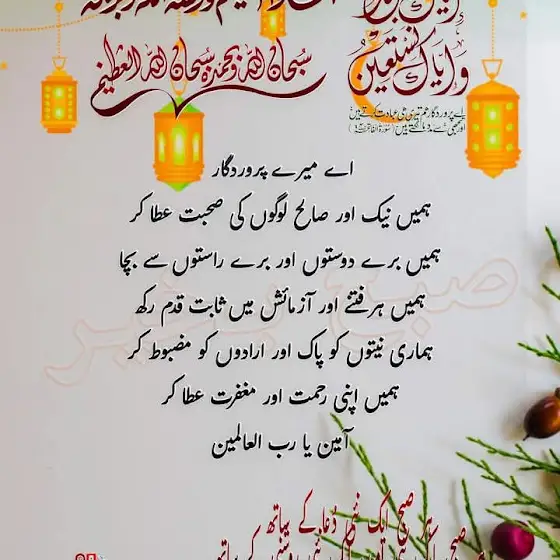 وَإِيَّاكَ نَسْتَعِينُ
سُبْحَانَ اللهِ وَبِحَمْدِهِ سُبْحَانَ اللهِ الْعَظِيمِ
اے پروردگار ہم تیری ہی عبادت کرتے ہیں
اے میرے پروردگار
ہمیں نیک اور صالح لوگوں کی صحبت عطا کر
ہمیں برے دوستوں اور برے راستوں سے بچا
ہمیں ہر فتنے اور آزمائش میں ثابت قدم رکھ
ہماری نیتوں کو پاک اور ارادوں کو مضبوط کر
ہمیں اپنی رحمت اور مغفرت عطا کر
آمین یا رب العالمین
صبح بخیر
ہر صبح ایک نئی دُعا کے ساتھ